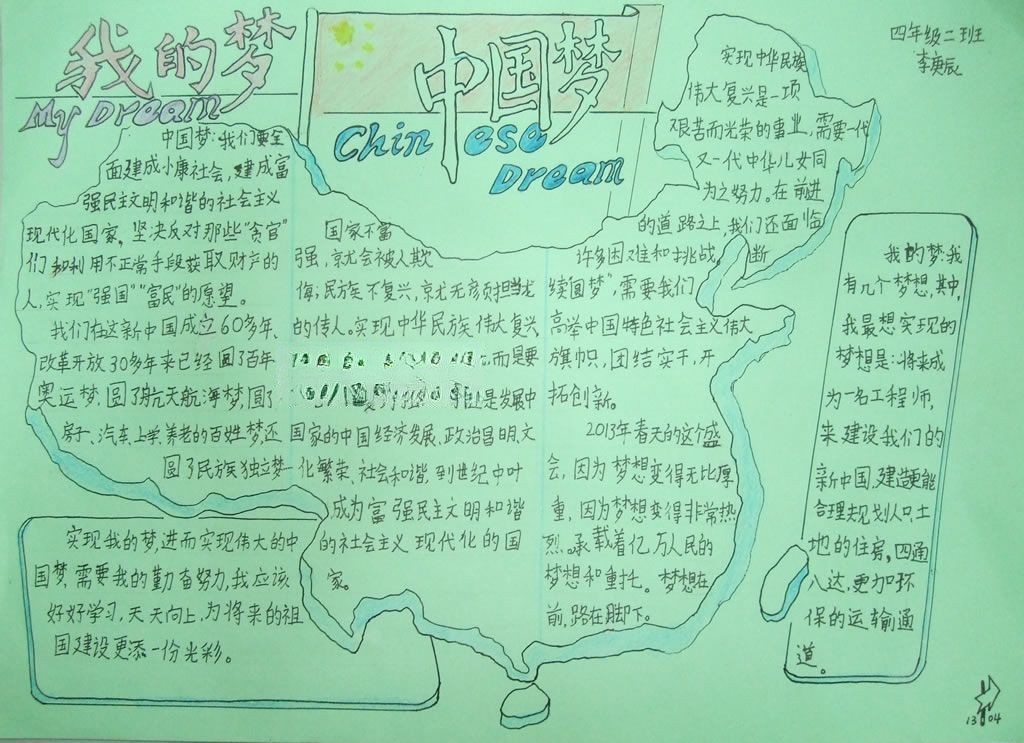 我的梦
My Dream
中国梦
Chinese
Dream
四年级二班
李庚辰
中国梦:我们要全
面建成小康社会,建成富
强民主文明和谐的社会主义
现代化国家,坚决反对那些“贪官”
们和利用不正常手段获取财产的
人,实现“强国”“富民”的愿望。
我们在这新中国成立60多年、
改革开放30多年来已经圆了百年
奥运梦、圆了航天航海梦,圆了
房子、汽车、上学、养老的百姓梦,还
圆了民族独立梦
国家不富
强,就会被人欺
侮;民族不复兴,就无颜担当龙
的传人。实现中华民族伟大复兴
而是要
是发展中
国家的中国经济发展、政治昌明、文
化繁荣、社会和谐,到世纪中叶
成为富强民主文明和谐
的社会主义现代化的国
家。
实现中华民族
伟大复兴是一项
艰苦而光荣的事业,需要一代
又一代中华儿女同
为之努力。在前进
的道路之上,我们还面临
许多困难和挑战。 断
续圆梦”,需要我们
高举中国特色社会主义伟大
旗帜,团结实干,开
拓创新。
2013年春天的这个盛
会,因为梦想变得无比厚
重,因为梦想变得非常热
烈。承载着亿万人民的
梦想和重托。梦想在
前,路在脚下。
我的梦:我
有几个梦想,其中,
我最想实现的
梦想是:将来成
为一名工程师,
来建设我们的
新中国,建造更能
合理规划人口、土
地的住房,四通
八达,更加环
保的运输通
道。
实现我的梦,进而实现伟大的中
国梦,需要我的勤奋努力,我应该
好好学习,天天向上,为将来的祖
国建设更添一份光彩。
13 04